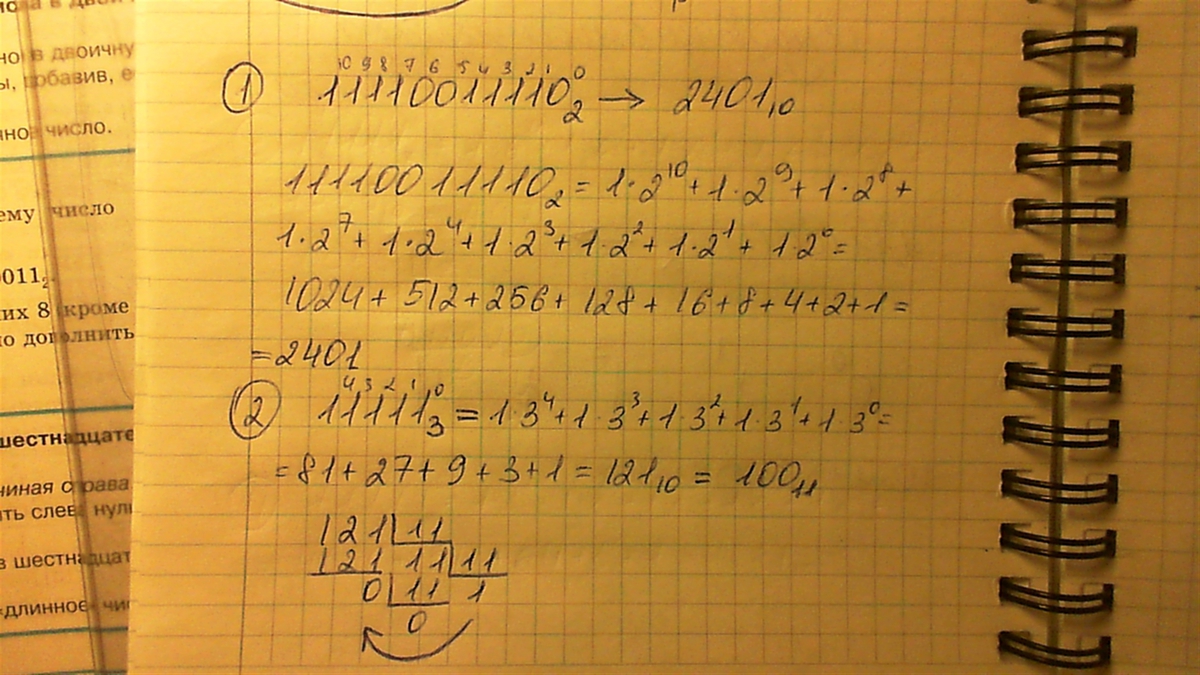 но в двоичну
ы, добавив, е
число.
ему число
0011₂.
их 8 (кроме
о дополнить
шестнадцате
чиная справа
ить слева нул
в шестнадцат
«длинное» чи
10 9 8 7 6 5 4 3 2 1 0
① 11110011110₂ → 2401₁₀
11110011110₂ = 1·2¹⁰ + 1·2⁹ + 1·2⁸ +
1·2⁷ + 1·2⁴ + 1·2³ + 1·2² + 1·2¹ + 1·2⁰ =
1024 + 512 + 256 + 128 + 16 + 8 + 4 + 2 + 1 =
= 2401
4 3 2 1 0
② 11111₃ = 1·3⁴ + 1·3³ + 1·3² + 1·3¹ + 1·3⁰ =
= 81 + 27 + 9 + 3 + 1 = 121₁₀ = 100₁₁
121 11
121 11 11
0 11 1
0